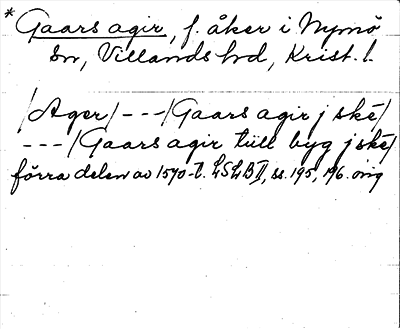 * Gaars agir, f. åker i Nymö
sn, Villands hd, Krist. l.
/Ager/ --- /Gaars agir j ské/
--- /Gaars agir tiill byg j ské/
förra delen av 1570-t. LSLB II, ss. 195, 196. orig